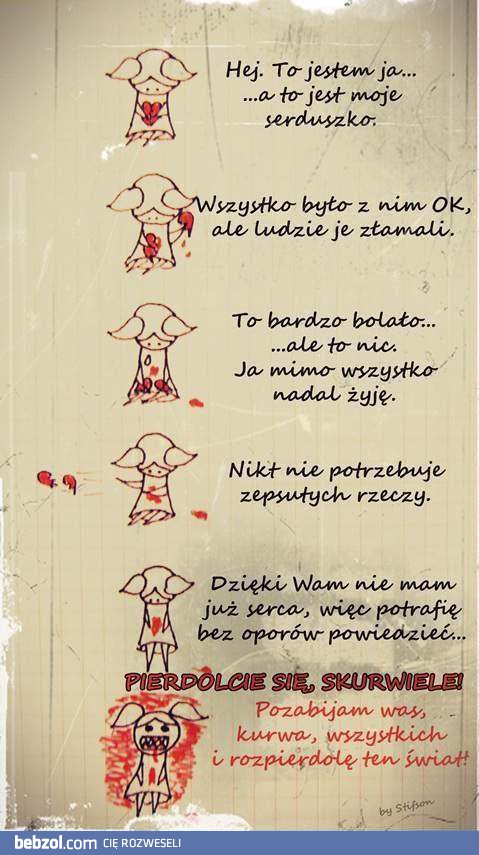 Hej. To jestem ja...
...a to jest moje
serduszko.
Wszystko było z nim OK,
ale ludzie je złamali.
To bardzo bolało...
...ale to nic.
Ja mimo wszystko
nadal żyję.
Nikt nie potrzebuje
zepsutych rzeczy.
Dzięki Wam nie mam
już serca, więc potrafię
bez oporów powiedzieć...
PIERDOLCIE SIĘ, SKURWIELE!
Pozabijam was,
kurwa, wszystkich
i rozpierdolę ten świat!
by Stifson
bebzol.com CIĘ ROZWESELI